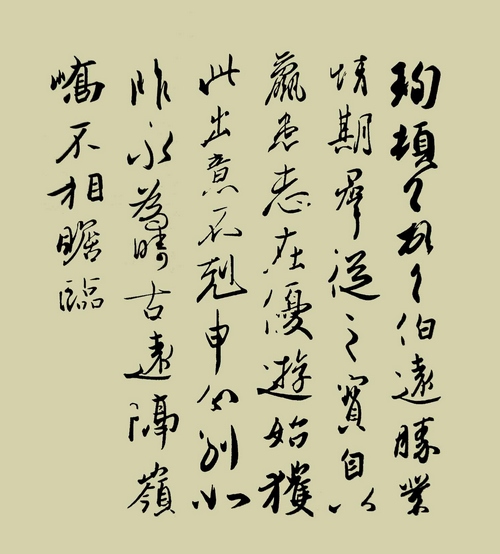 珣頓首頓首伯遠勝業
情期羣從之寶自以
羸患志在優遊始獲
此出意不剋申分別如
昨永為疇古遠隔嶺
嶠不相瞻臨